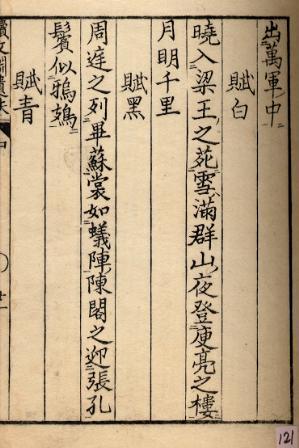 出萬軍中
賦白
曉入梁王之苑雪滿群山夜登庾亮之樓
月明千里
賦黑
周庭之列畢蘇裳如蟻陣陳閣之迎張孔
鬢似鵶
賦青
121